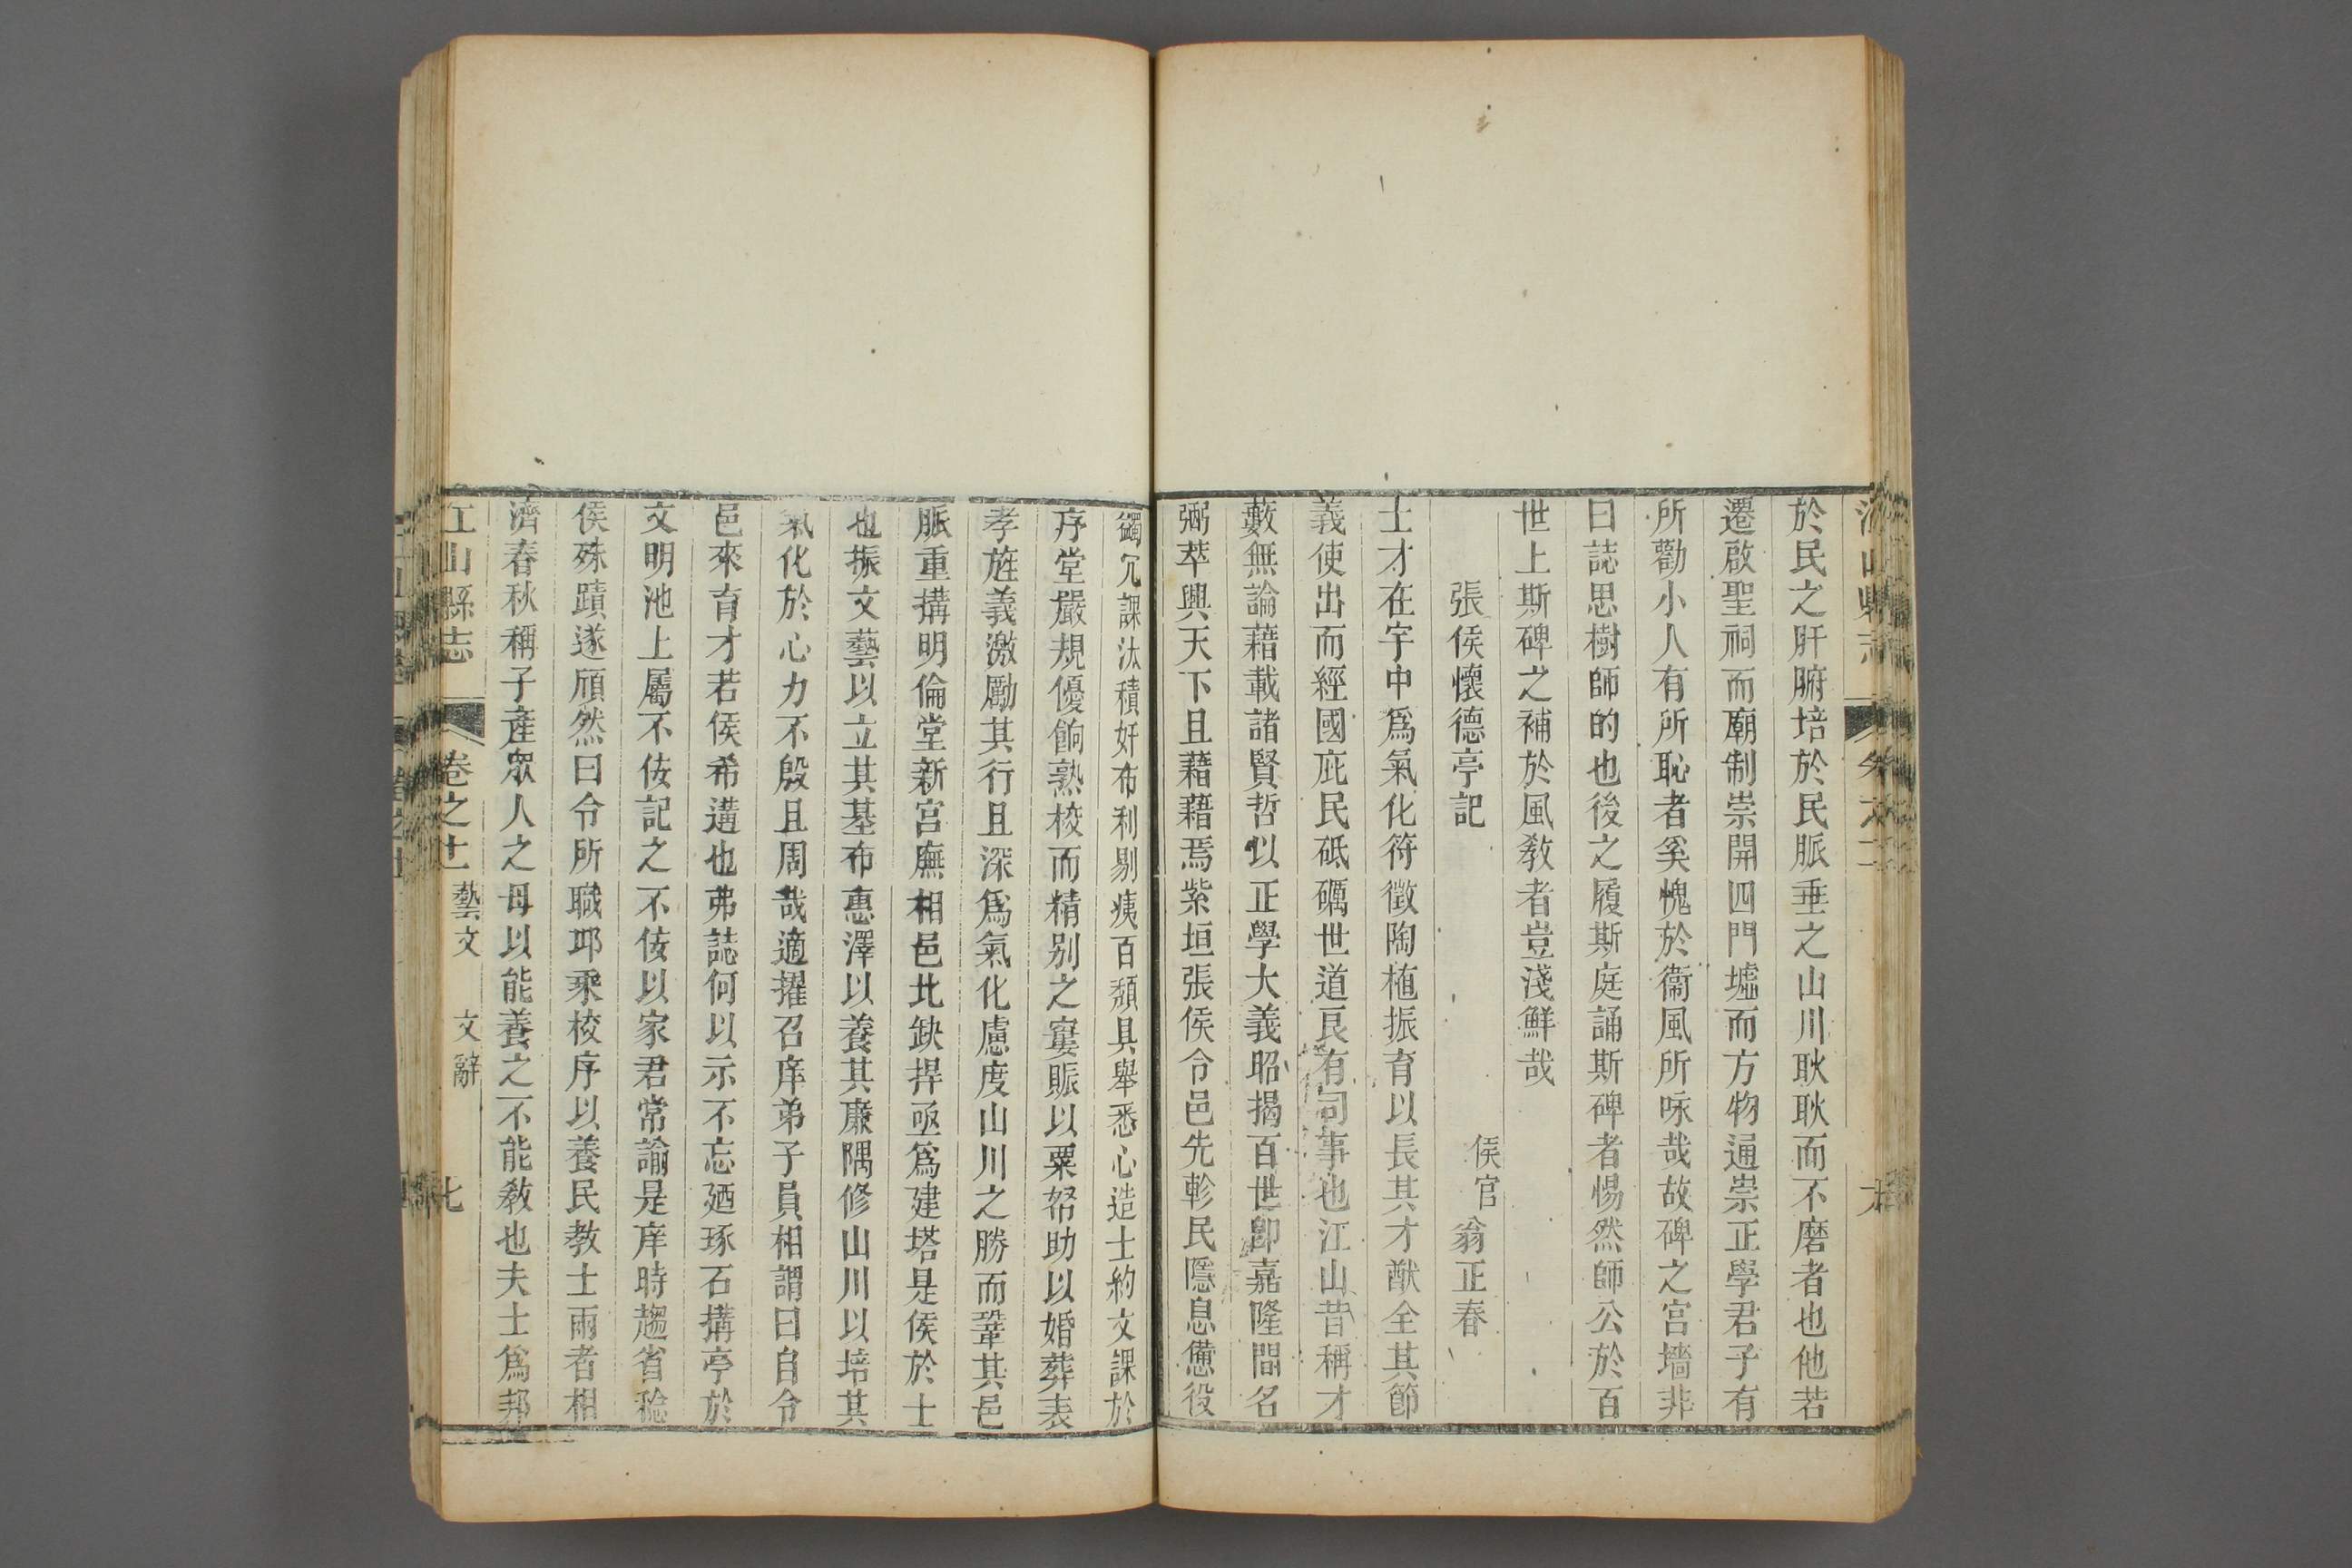 於民之肝腑培於民脈垂之山川耿耿而不磨者也他若
遷啟聖祠而廟制崇開四門墟而方物通崇正學君子有
所勸小人有所恥者奚愧於衞風所咏哉故碑之宫墻非
曰誌思樹師的也後之履斯庭誦斯碑者惕然師公於百
世上斯碑之補於風敎者豈淺鮮哉
張侯懷德亭記　侯官翁正春
士才在宇中爲氣化符徵陶植振育以長其才猷全其節
義使出而經國庇民砥礪世道良有司事也江山昔稱才
藪無論藉載諸賢哲以正學大義昭揭百世卽嘉隆間名
弼萃興天下且藉藉焉紫垣張侯令邑先軫民隱息憊役
蠲冗課汰積奸布利剔痍百頽具舉悉心造士約文課於
序堂嚴規優餉熟校而精别之窶賑以粟帑助以婚葬表
孝旌義激勵其行且深爲氣化慮度山川之勝而鞏其邑
脈重搆明倫堂新宫廡相邑北缺捍亟爲建塔是侯於士
也振文藝以立其基布惠澤以養其廉隅修山川以培其
氣化於心力不殷且周哉適擢召庠弟子員相謂曰自令
邑來育才若侯希遘也弗誌何以示不忘廼琢石搆亭於
文明池上屬不佞記之不佞以家君常諭是庠時趨省稔
侯殊蹟遂頎然曰令所職耶乘校序以養民教士兩者相
濟春秋稱子產衆人之母以能養之不能敎也夫士爲邦
江山縣志　卷之十一　藝文　文辭　七